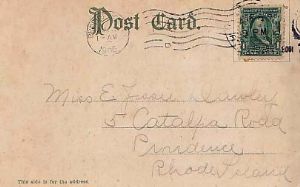 Post Card.
1 - AM
3 PM
Miss E. Dawley
5 Catalpa Road
Providence
Rhode Island
This side is for the address.